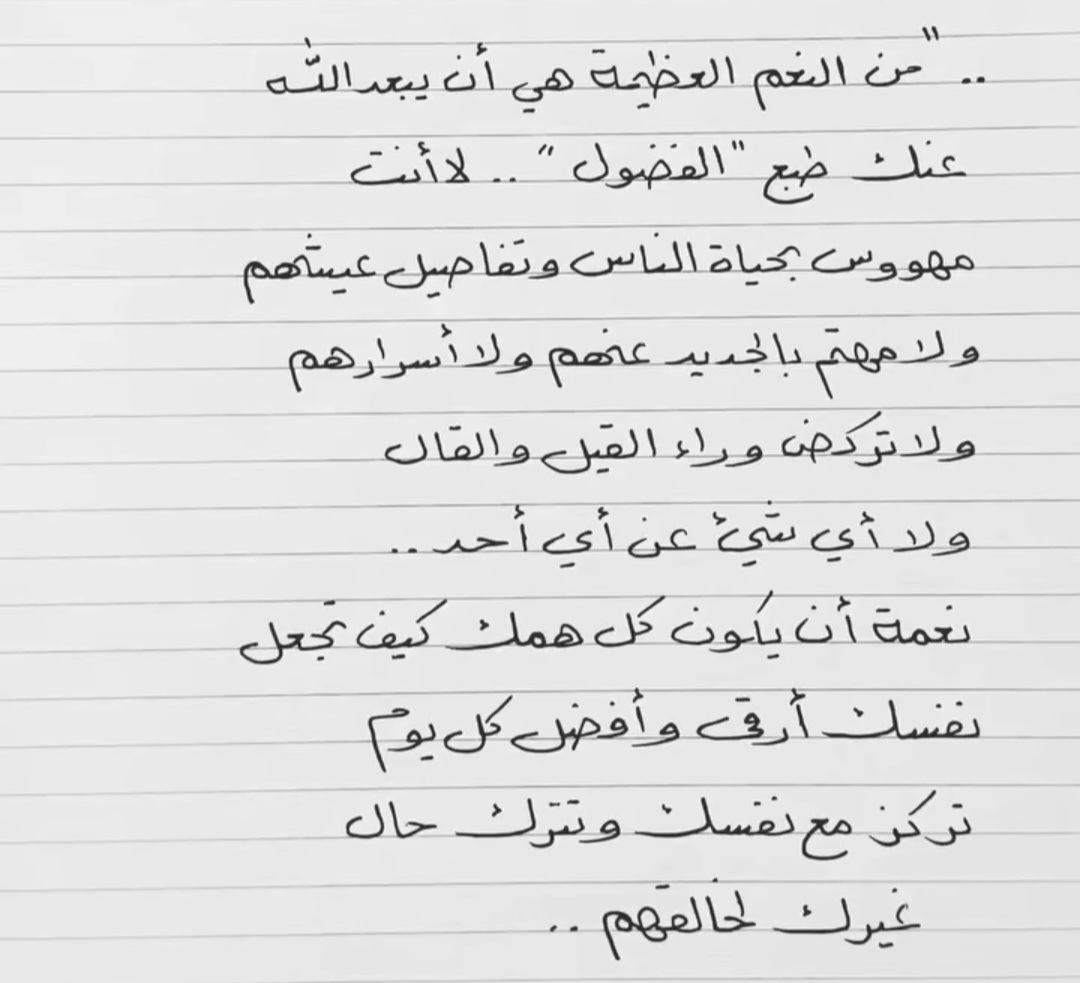 .. "من النعم العظيمة هي أن يبعد الله
عنك طبع "الفضول" .. لا أنت
مهووس بحياة الناس وتفاصيل عيشهم
ولا مهتم بالجديد عنهم ولا أسرارهم
ولا تركض وراء القيل والقال
ولا أي شيئ عن أي أحد ..
نعمة أن يكون كل همك كيف تجعل
نفسك أرقى وأفضل كل يوم
تركز مع نفسك وتترك حال
غيرك لخالقهم ..